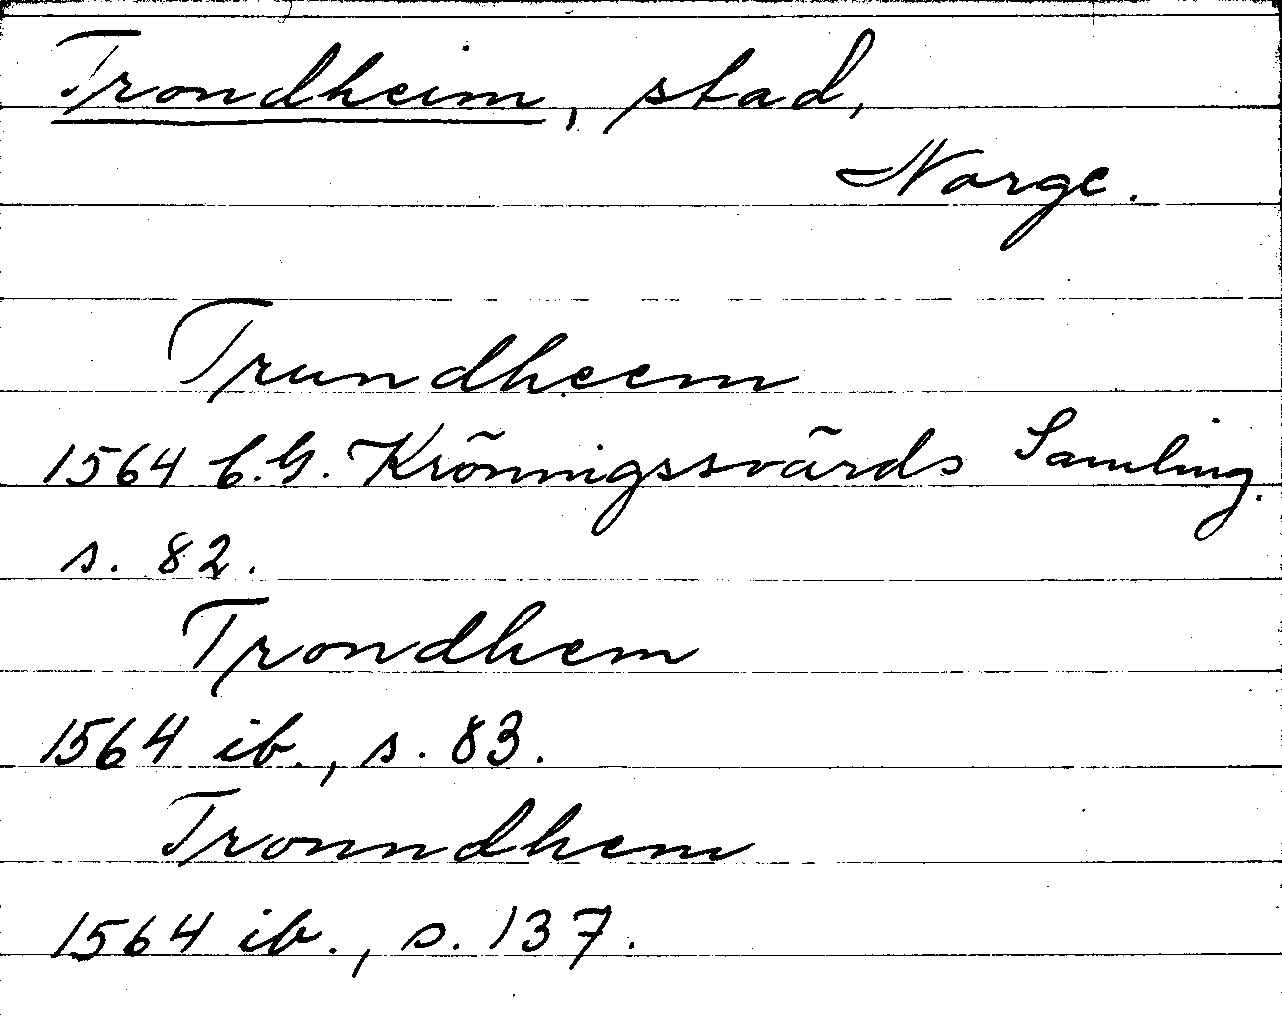 Trondheim, stad,
Norge.
Trundheem
1564 C.G. Krönnigssvärds Samling.
s. 82.
Trondhem
1564 ib., s. 83.
Tronndhem
1564 ib., s. 137.